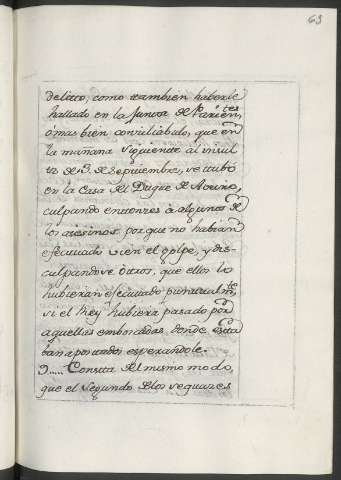 63
delito; como tambien haberse
hallado en la Junta de Parien.tes
ò mas bien conciliábulo, que en
la mañana siguiente al insul
to de 3. de Septiembre, se tubo
en la Casa del Duque de Aveiro,
culpando entonces à algunos de
los asesinos por que no habian
efecutado bien el golpe, y dis-
culpandose otros, que ellos lo
hubieran efecutado puntualm.te
si el Rey hubiera pasado por
aquellas emboscadas, donde esta
ban apostados esperandole.
Consta del mismo modo,
que el segundo de los seguares